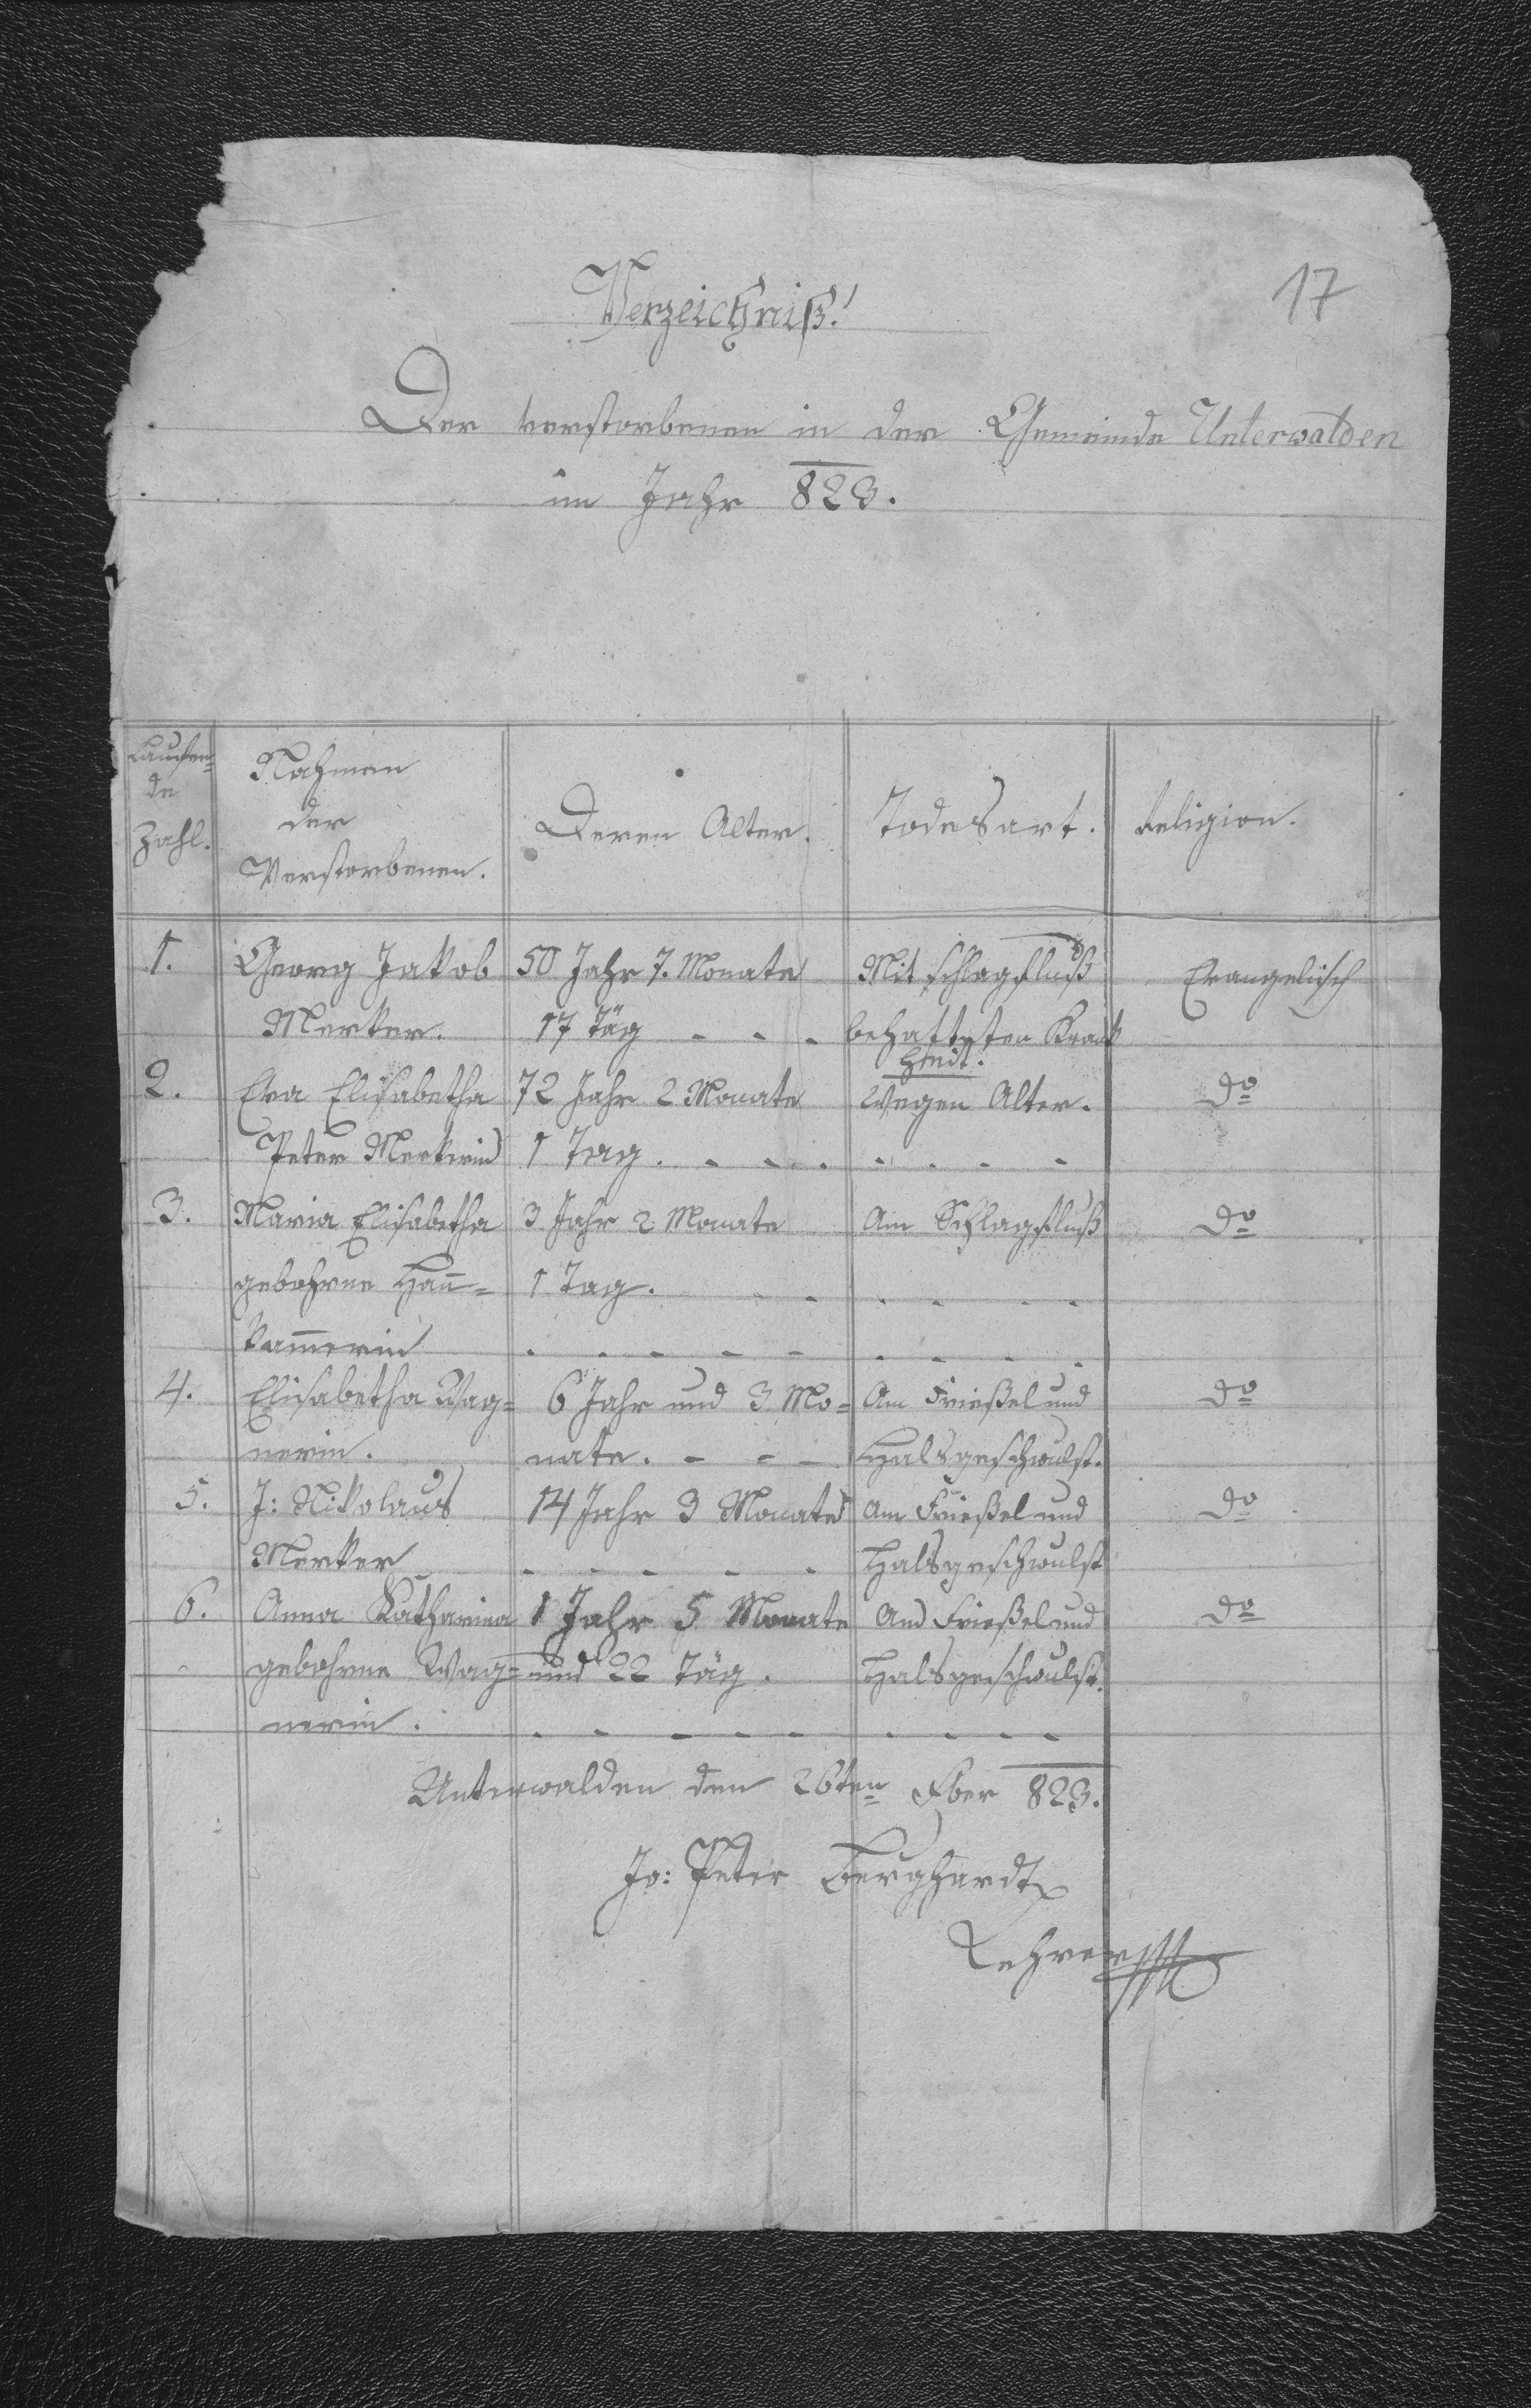 17
Verzeichniß!
Der verstorbenen in der Gemeinde Unterwalden
im Jahr 823.
Laufen=
de
Zahl.
Nahmen
der
Verstorbenen.
Deren Alter.
Todesart.
Religion.
1. Georg Jakob 50 Jahr 7. Monate Mit schlagfluß Evangelisch
Merker. 17 Täg - - - behafteten Krank
heit.
2. Eva Elisabetha 72 Jahr 2 Monate Wegen Alter. do
Peter Merkerin 1 Tag. - - - - - - -
3. Maria Elisabetha 3 Jahr 2 Monate Am Schlagfluß do
gebohrne Han̄= 1 Tag. - - - - - -
kam̄erin - - - - - - - - -
4. Elisabetha Wag= 6 Jahr und 3 Mo= Am Frießel und do
nerin. nate. - - - Halsgeschwulst.
5. J: Nikolaus 14 Jahr 3 Monate Am Frießel und do
Merker - - - - - Halsgeschwulst
6. Anna Katharina 1 Jahr 5 Monate Am Frießel und do
gebohrne Wag= und 22 Täg. Halsgeschwulst.
nerin. - - - - - - - - -
Unterwalden den 26ten 823.
Jo: Peter Berghardt
Lehrer